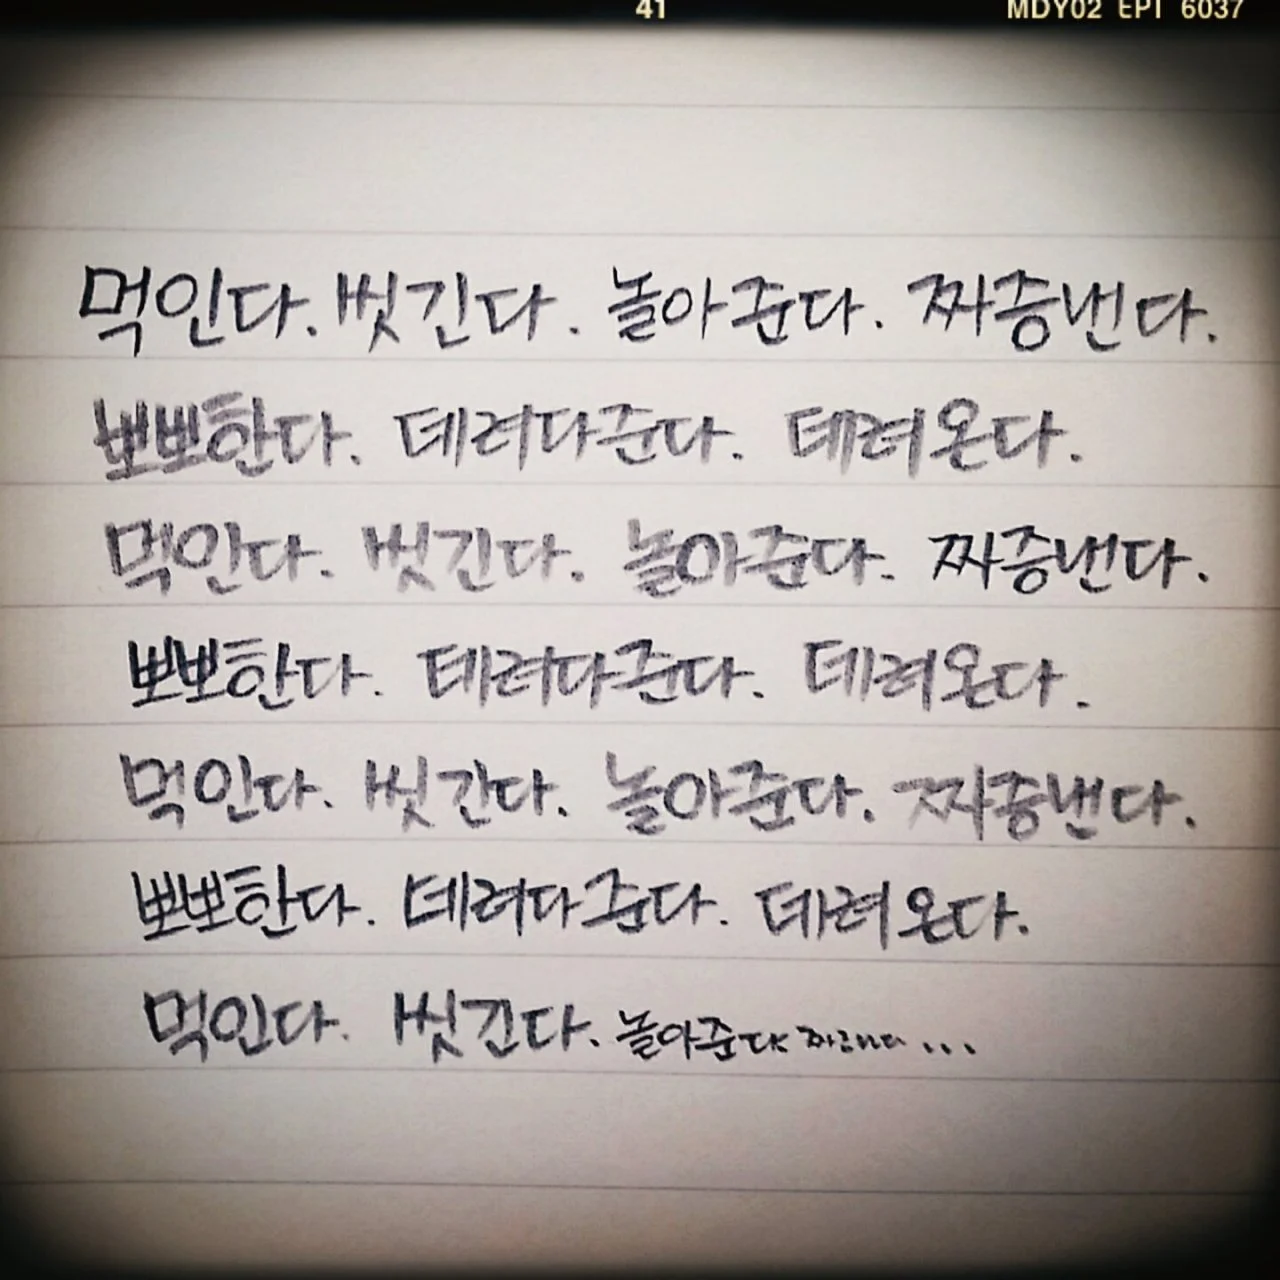 41 MDY02 EPT 6037
먹인다. 씻긴다. 놀아준다. 짜증낸다.
뽀뽀한다. 데려다준다. 데려온다.
먹인다. 씻긴다. 놀아준다. 짜증낸다.
뽀뽀한다. 데려다준다. 데려온다.
먹인다. 씻긴다. 놀아준다. 짜증낸다.
뽀뽀한다. 데려다준다. 데려온다.
먹인다. 씻긴다. 놀아준다 ...